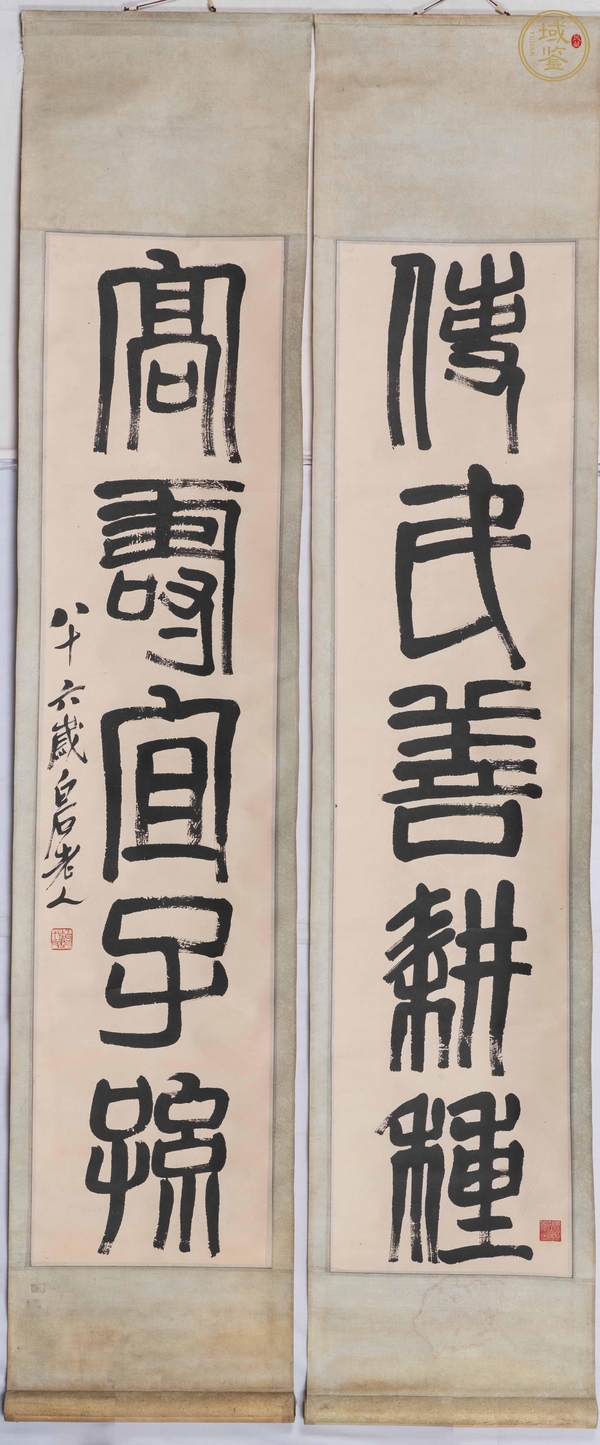 使民善耕種
高壽宜子孫
八十六歲白石老人
域鉴